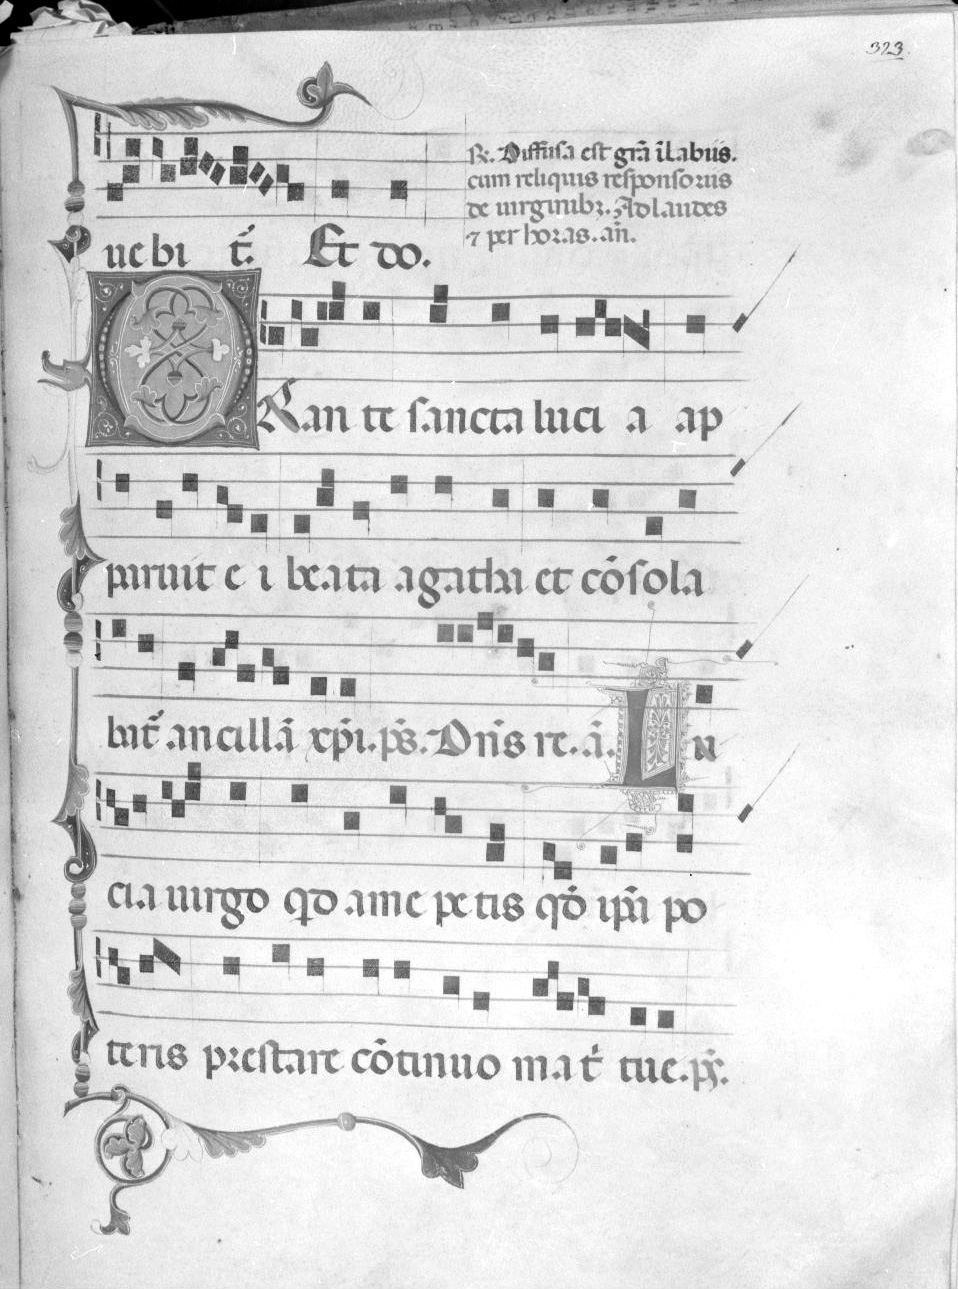 323.
R. Diffusa est grã ĩ labiis.
cum reliquis responsoriis
de uirginibꝫ. Ad laudes
⁊ per horas. añ.
uebi t̃. Et do.
ORan te sancta luci a ap
paruit e i beata agatha et cõsola
bat̃ ancillã xpi. p̃s. Dñs re. ã. Lu
cia uirgo qd a me petis qõ ip̃a po
teris prestare cõtinuo mat̃ tue. p̃s.